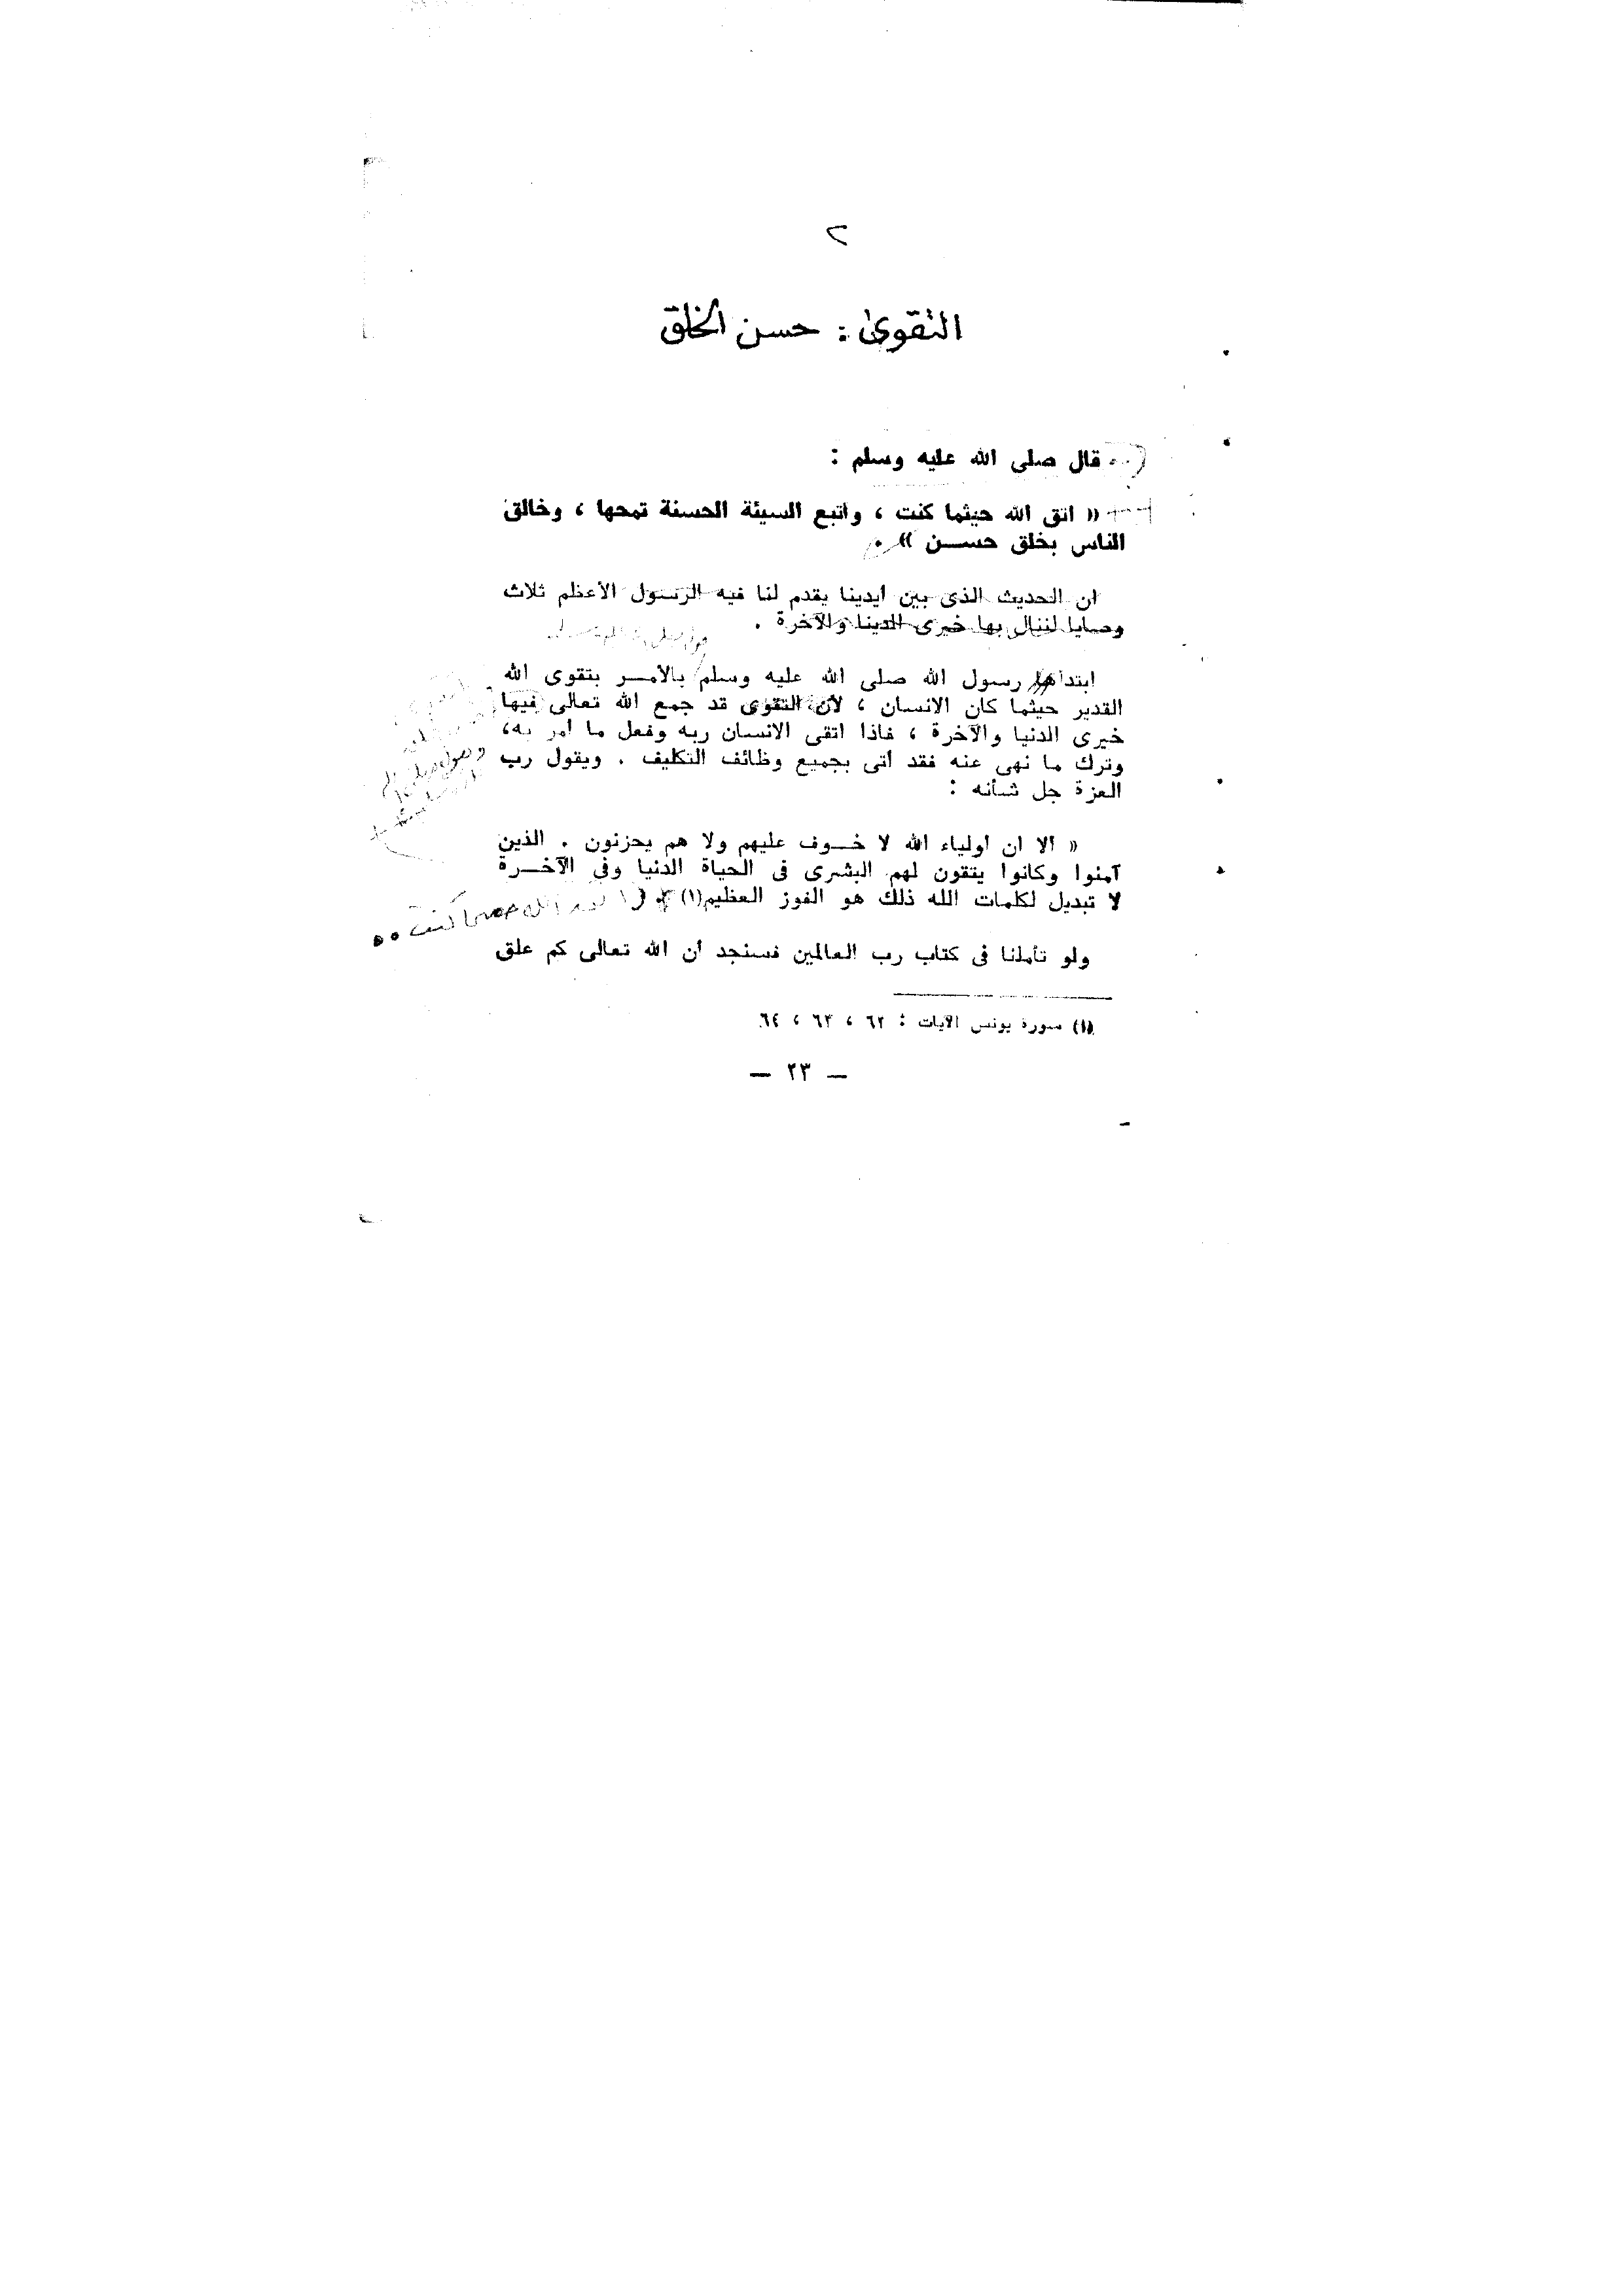 ٢
التقوى : حسن الخلق
قال صلى الله عليه وسلم :
« اتق الله حيثما كنت ، واتبع السيئة الحسنة تمحها ، وخالق
الناس بخلق حســن » .
ان الحديث الذى بين ايدينا يقدم لنا فيه الرسول الأعظم ثلاث
وصايا لننال بها خيرى الدينا والآخرة .
ابتداها رسول الله صلى الله عليه وسلم بالأمــر بتقوى الله
القدير حيثما كان الانسان ، لأن التقوى قد جمع الله تعالى فيها
خيرى الدنيا والآخرة ، فاذا اتقى الانسان ربه وفعل ما امر به،
وترك ما نهى عنه فقد اتى بجميع وظائف التكليف . ويقول رب
العزة جل شأنه :
« ألا ان اولياء الله لا خــوف عليهم ولا هم يحزنون . الذين
آمنوا وكانوا يتقون لهم البشرى فى الحياة الدنيا وفى الآخــرة
لا تبديل لكلمات الله ذلك هو الفوز العظيم(١) الله كنت ..
ولو تأملنا فى كتاب رب العالمين فسنجد أن الله تعالى كم علق
(١) سورة يونس الآيات : ٦٢ ، ٦٣ ، ٦٤
— ٢٣ —